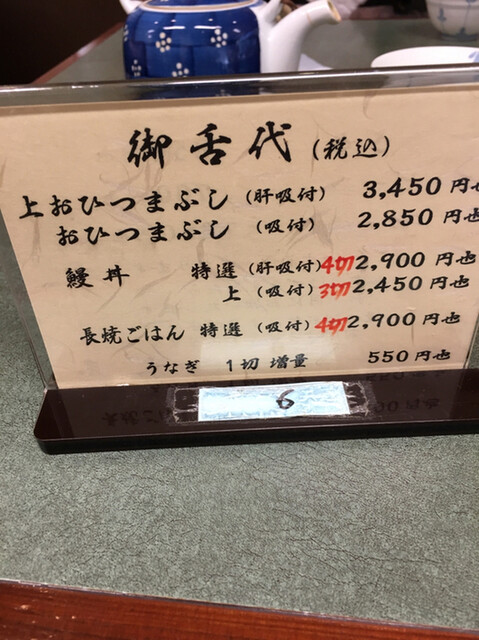 御舌代(税込)
上おひつまぶし(肝吸付) 3,450円也
おひつまぶし(吸付) 2,850円也
鰻丼 特選(肝吸付)4切2,900円也
上(吸付)3切2,450円也
長焼ごはん 特選(吸付)4切2,900円也
うなぎ 1切 増量 550円也
6